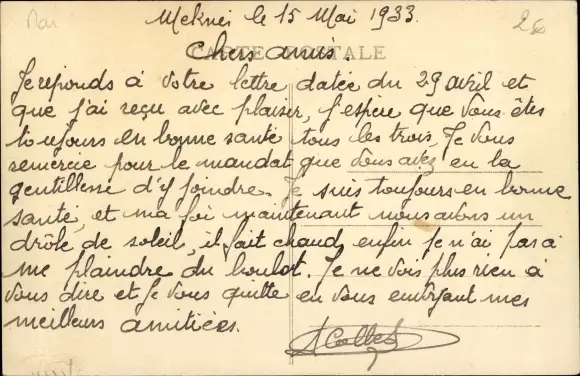 Mar
Meknès le 15 Mai 1933.
CARTE POSTALE
Chers amis.
Je réponds à votre lettre datée du 29 avril et
que j'ai reçu avec plaisir, j'espère que vous êtes
toujours en bonne santé tous les trois. Je vous
remercie pour le mandat que vous avez eu la
gentillesse d'y joindre. Je suis toujours en bonne
santé, et ma foi maintenant nous avons un
drôle de soleil, il fait chaud, enfin je n'ai pas à
me plaindre du boulot. Je ne vois plus rien à
vous dire et je vous quitte en vous envoyant mes
meilleurs amitiées.